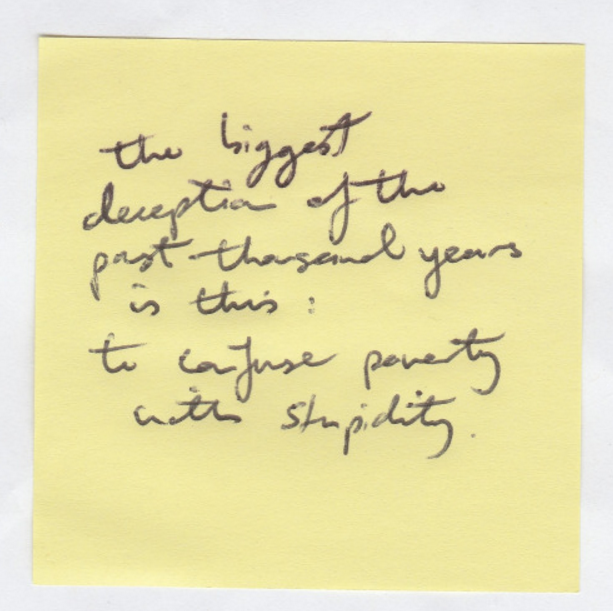 the biggest
deception of the
past thousand years
is this:
to confuse poverty
with stupidity.